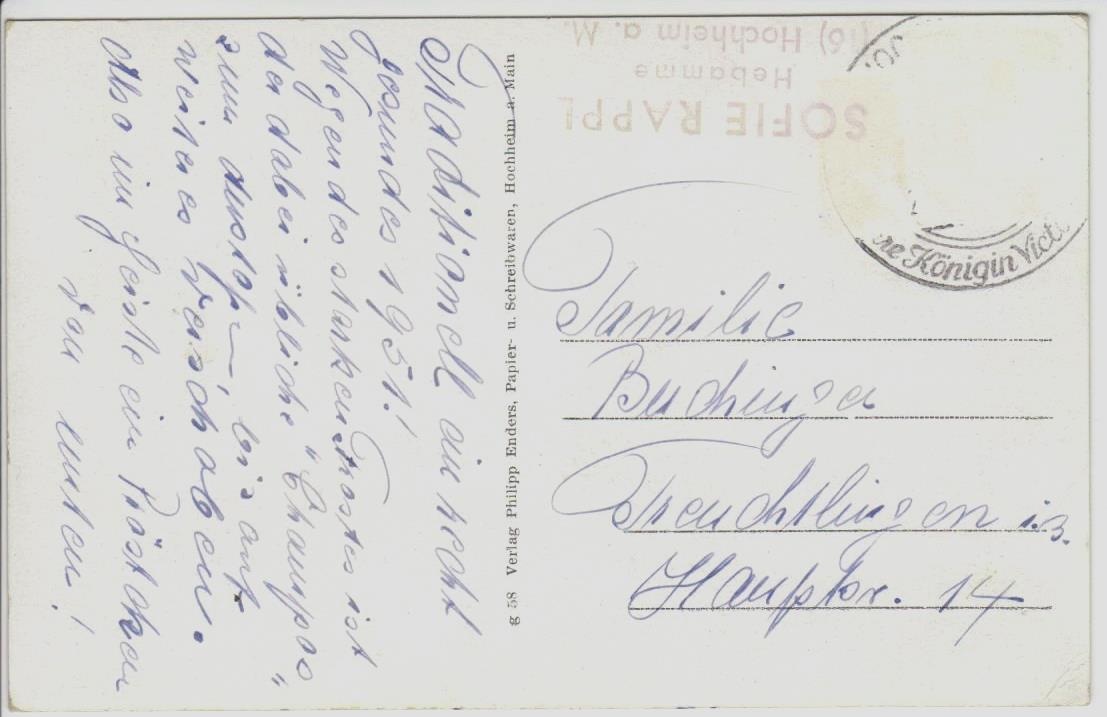 Traditionell ein recht
gesundes 1951!
Wegen des starken Frostes ist
der dabei übliche "Champus"
zum bis auf
weiteres verschoben.
Also im Geiste ein Pröstchen
von unten!
g 58 Verlag Philipp Enders, Papier- u. Schreibwaren, Hochheim a. Main
SOFIE RAPPL
Hebamme
(16) Hochheim a. M.
Königin Vict
Familie
Buchinger
Treuchtlingen i.B.
Hauptstr. 14